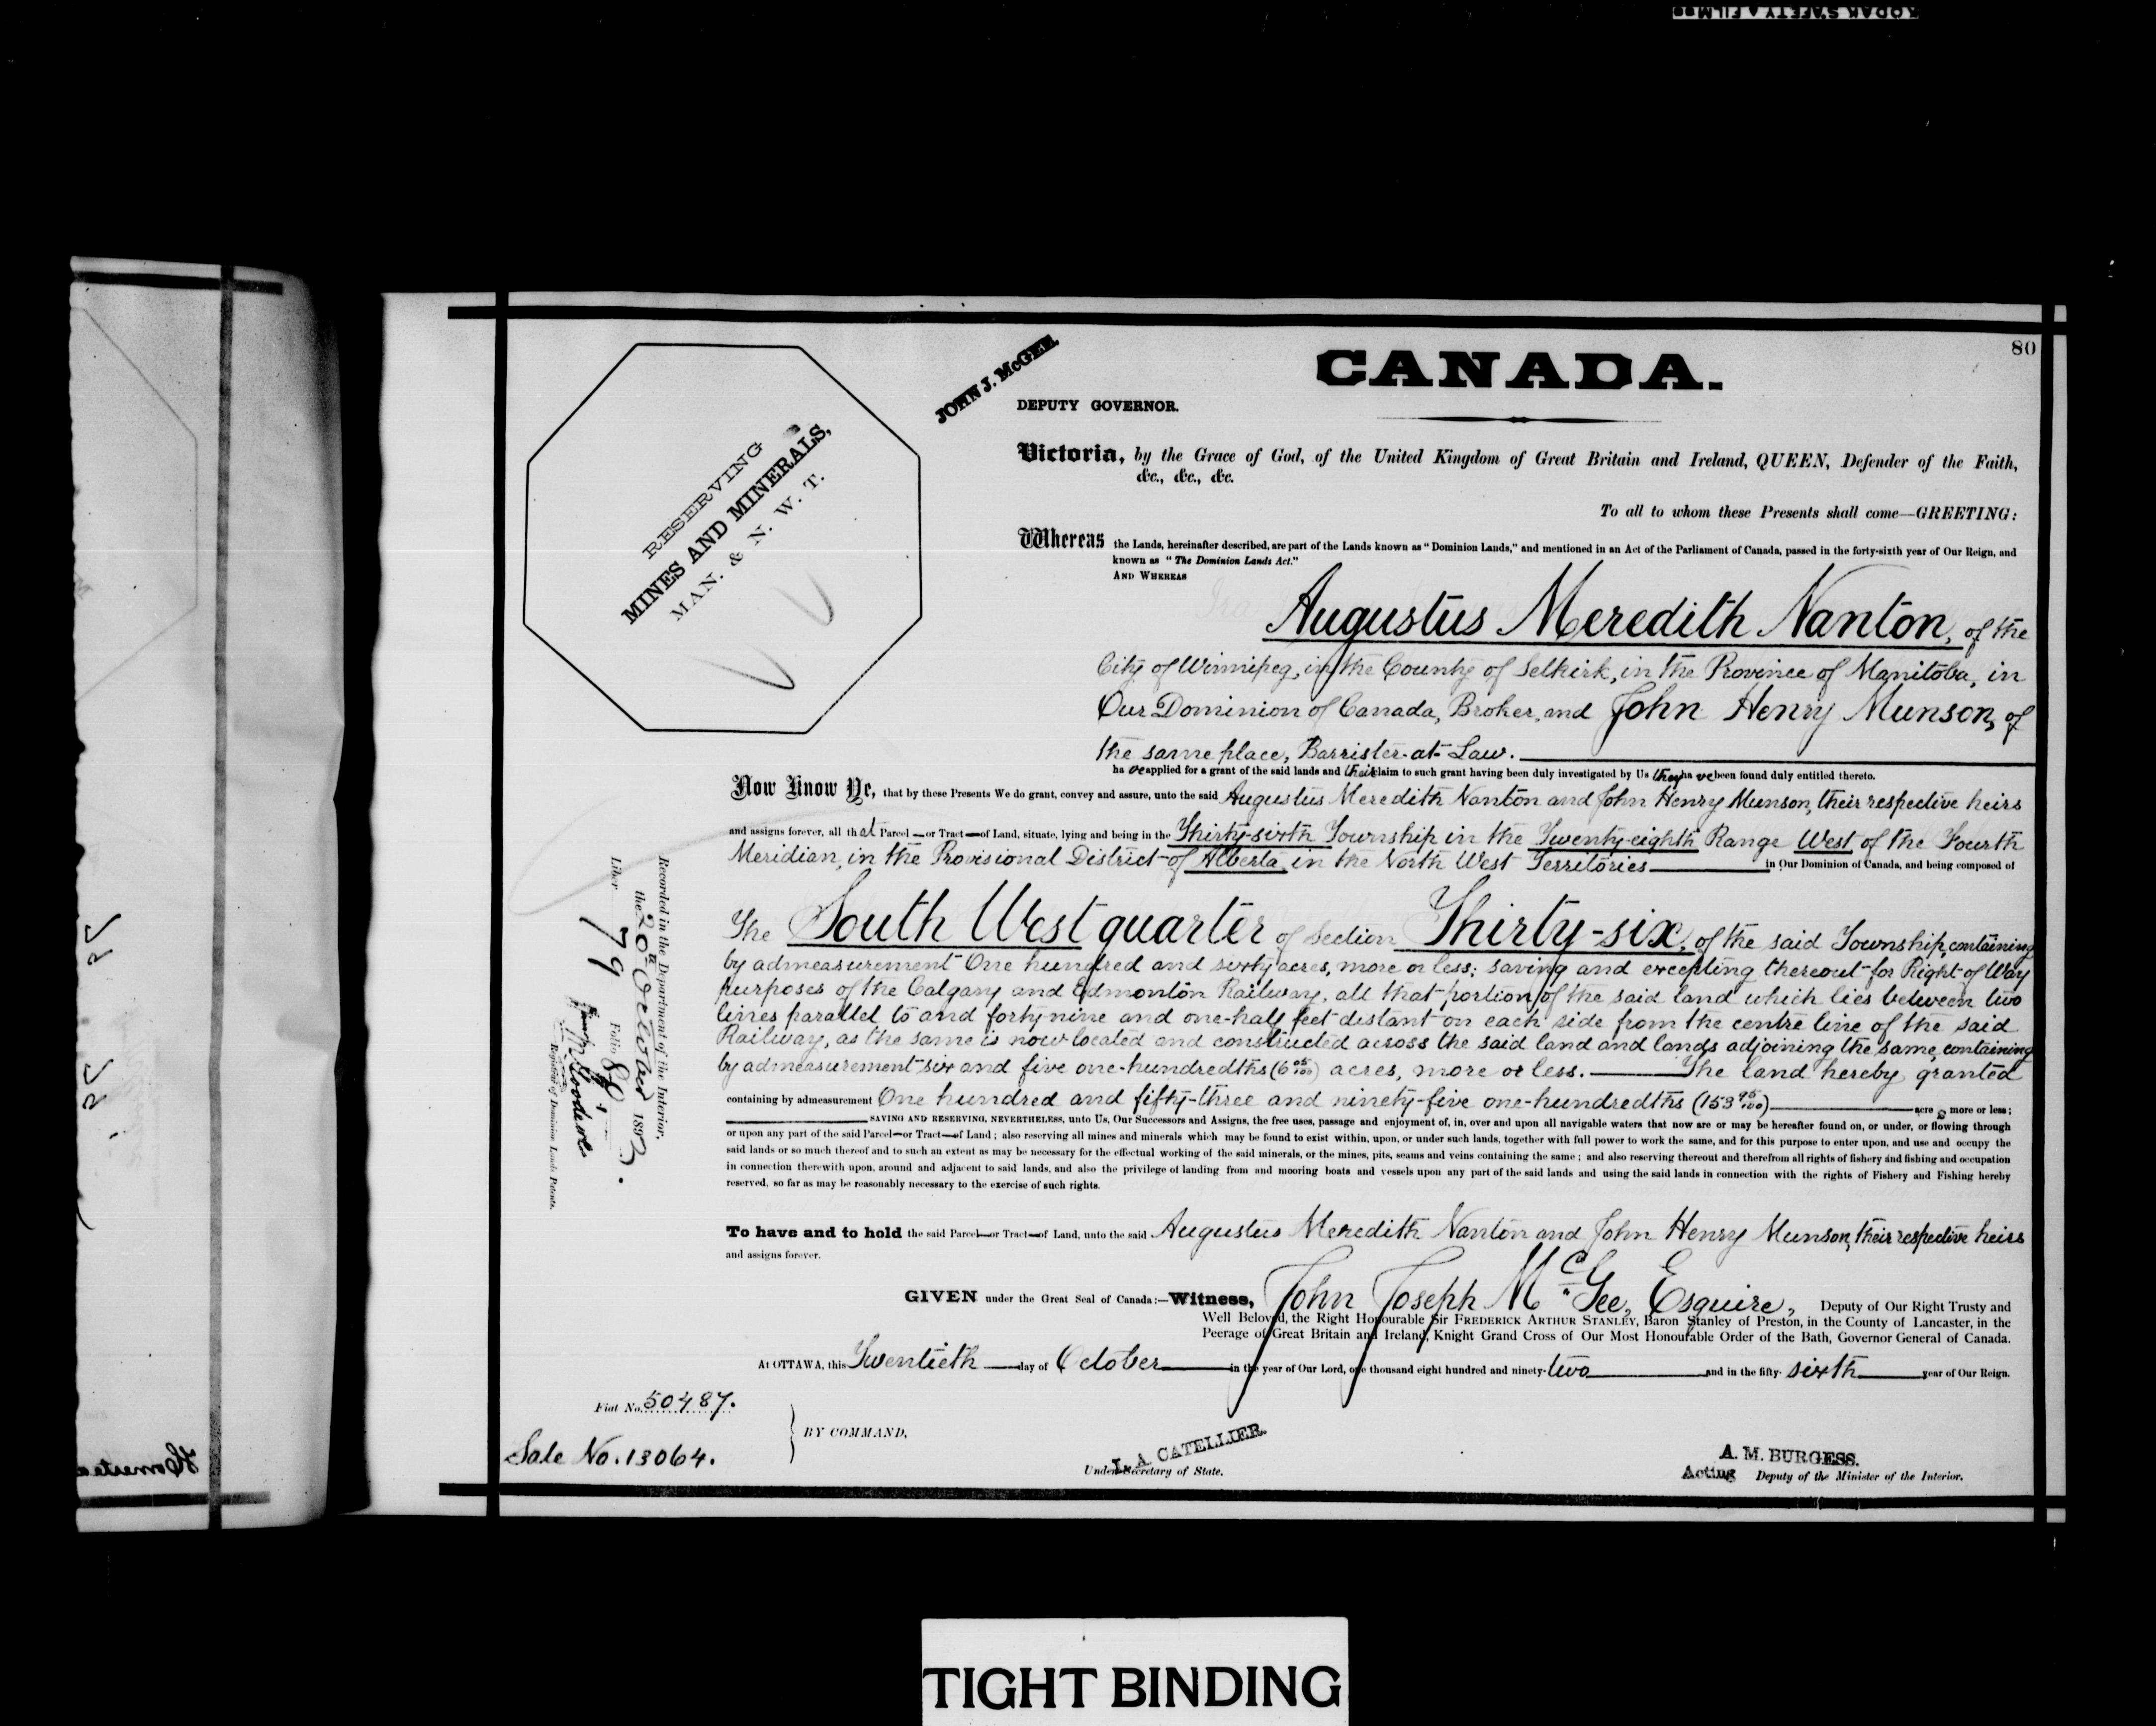 KODAK SAFETY FILM
80
CANADA.
JOHN J. McGEE.
DEPUTY GOVERNOR.
RESERVING
MINES AND MINERALS,
MAN. & N. W. T.
Victoria, by the Grace of God, of the United Kingdom of Great Britain and Ireland, QUEEN, Defender of the Faith,
&c., &c., &c.
To all to whom these Presents shall come—GREETING:
Whereas the Lands, hereinafter described, are part of the Lands known as "Dominion Lands," and mentioned in an Act of the Parliament of Canada, passed in the forty-sixth year of Our Reign, and
known as "The Dominion Lands Act."
AND WHEREAS
Augustus Meredith Nanton, of the
City of Winnipeg, in the County of Selkirk, in the Province of Manitoba, in
Our Dominion of Canada, Broker, and John Henry Munson, of
the same place, Barrister-at-Law.
ha ve applied for a grant of the said lands and their claim to such grant having been duly investigated by Us they ha ve been found duly entitled thereto.
Now Know Ye, that by these Presents We do grant, convey and assure, unto the said Augustus Meredith Nanton and John Henry Munson, their respective heirs
and assigns forever, all that Parcel—or Tract—of Land, situate, lying and being in the Thirty-sixth Township in the Twenty-eighth Range West of the Fourth
Meridian, in the Provisional District of Alberta, in the North West Territories in Our Dominion of Canada, and being composed of
The South West quarter of Section Thirty-six, of the said Township, containing
by admeasurement One hundred and sixty acres, more or less; saving and excepting thereout for Right-of-Way
purposes of the Calgary and Edmonton Railway, all that portion of the said land which lies between two
lines parallel to and forty-nine and one-half feet distant on each side from the centre line of the said
Railway, as the same is now located and constructed across the said land and lands adjoining the same, containing
by admeasurement six and five one-hundredths (6 05/100) acres, more or less. — The land hereby granted
containing by admeasurement One hundred and fifty-three and ninety-five one-hundredths (153 95/100) acre s more or less;
SAVING AND RESERVING, NEVERTHELESS, unto Us, Our Successors and Assigns, the free uses, passage and enjoyment of, in, over and upon all navigable waters that now are or may be hereafter found on, or under, or flowing through
or upon any part of the said Parcel—or Tract—of Land; also reserving all mines and minerals which may be found to exist within, upon, or under such lands, together with full power to work the same, and for this purpose to enter upon, and use and occupy the
said lands or so much thereof and to such an extent as may be necessary for the effectual working of the said minerals, or the mines, pits, seams and veins containing the same; and also reserving thereout and therefrom all rights of fishery and fishing and occupation
in connection therewith upon, around and adjacent to said lands, and also the privilege of landing from and mooring boats and vessels upon any part of the said lands and using the said lands in connection with the rights of Fishery and Fishing hereby
reserved, so far as may be reasonably necessary to the exercise of such rights.
To have and to hold the said Parcel—or Tract—of Land, unto the said Augustus Meredith Nanton and John Henry Munson, their respective heirs
and assigns forever.
GIVEN under the Great Seal of Canada:—Witness, John Joseph McGee, Esquire, Deputy of Our Right Trusty and
Well Beloved, the Right Honourable Sir FREDERICK ARTHUR STANLEY, Baron Stanley of Preston, in the County of Lancaster, in the
Peerage of Great Britain and Ireland, Knight Grand Cross of Our Most Honourable Order of the Bath, Governor General of Canada.
At OTTAWA, this Twentieth day of October in the year of Our Lord, one thousand eight hundred and ninety-two and in the fifty-sixth year of Our Reign.
Recorded in the Department of the Interior,
the 20th October 189
Liber 79 Folio 80
Registrar of Dominion Lands Patents.
Fiat No. 50487.
Sale No. 13064.
BY COMMAND,
L. A. CATELLIER.
Under Secretary of State.
A. M. BURGESS.
Acting Deputy of the Minister of the Interior.
TIGHT BINDING